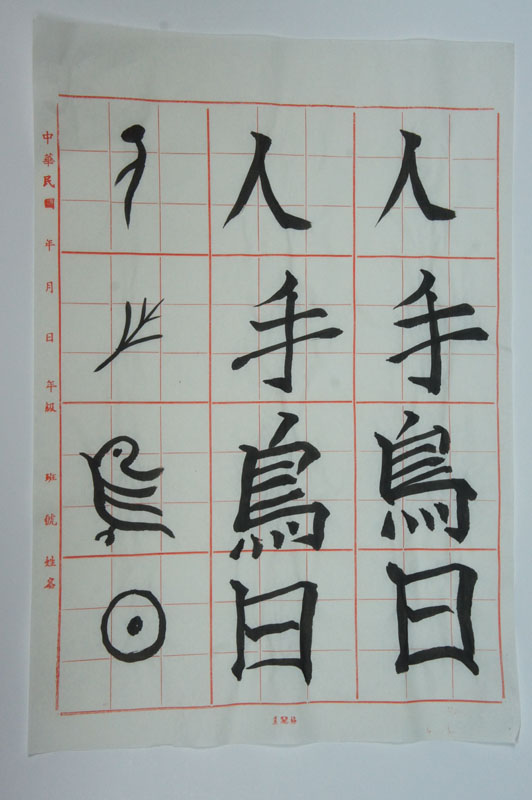 人手鳥日
人手鳥日
中華民國 年 月 日 年級 班 號 姓名